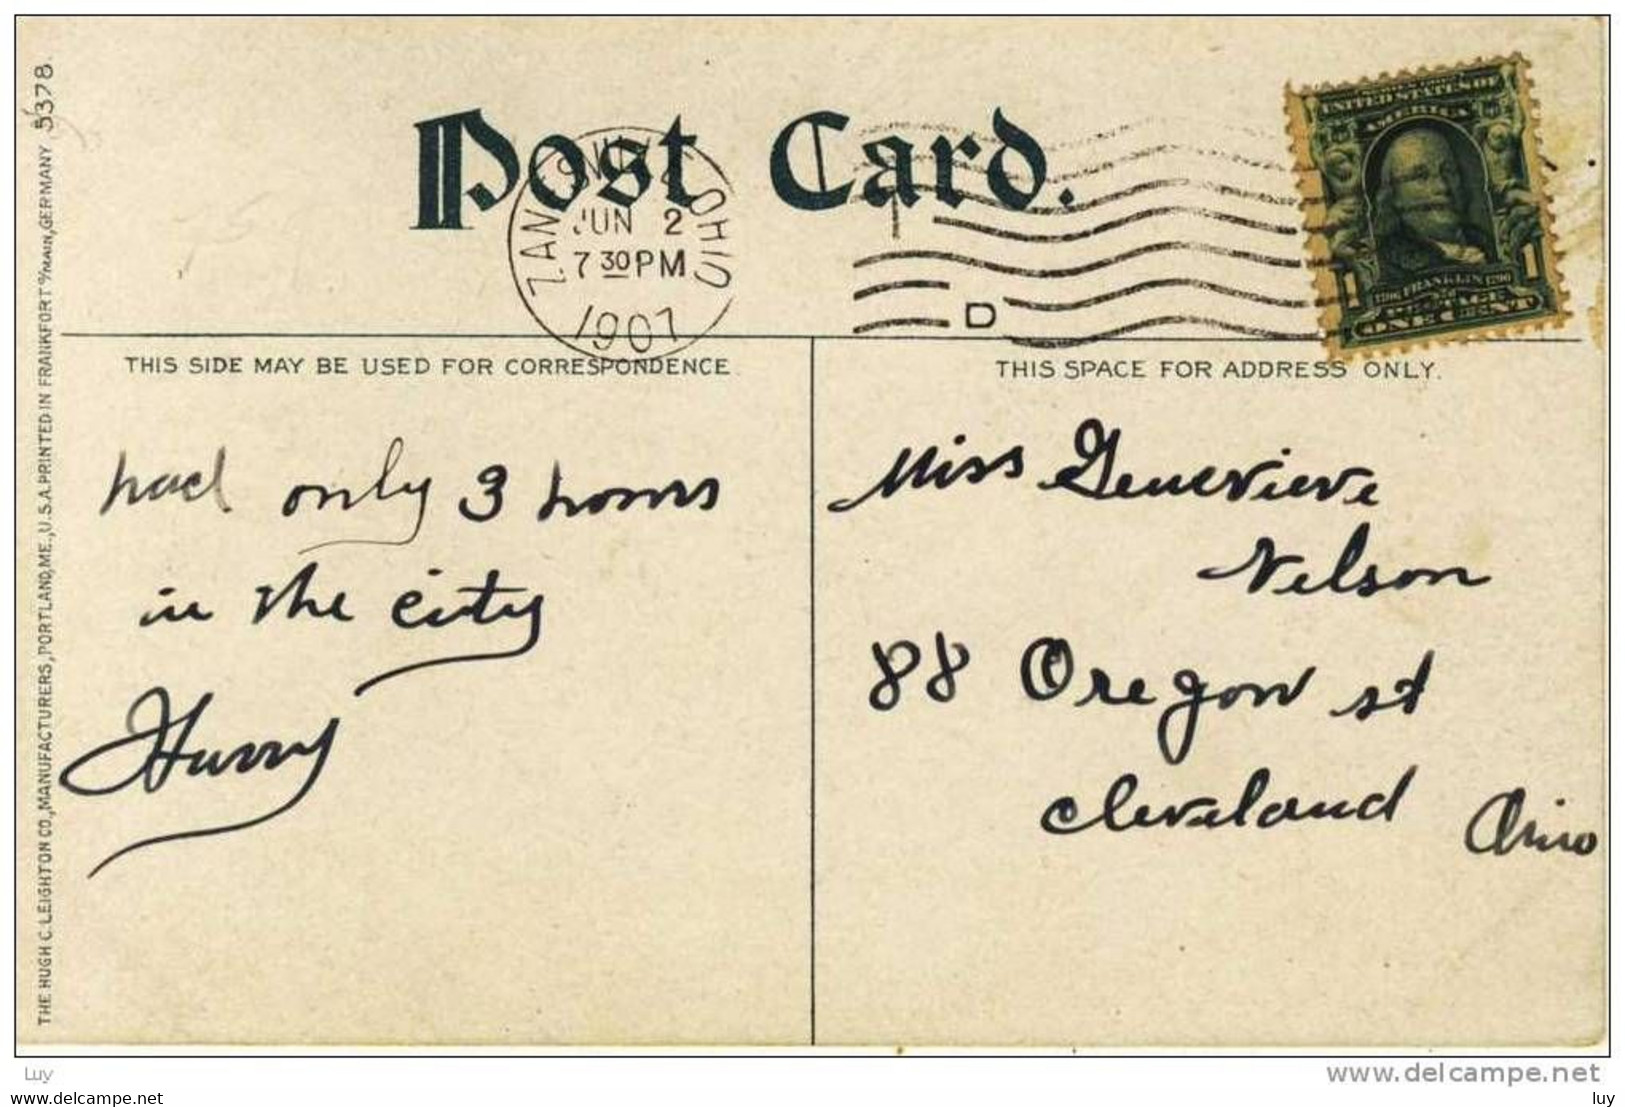 Post Card.
ZANESVILLE OHIO
JUN 2
7 30 PM
1907
D
UNITED STATES OF
AMERICA
1706 FRANKLIN 1790
POSTAGE
1 ONE CENT 1
THIS SIDE MAY BE USED FOR CORRESPONDENCE.
THIS SPACE FOR ADDRESS ONLY.
had only 3 hours
in the city
Harry
Miss Genevieve
Nelson
88 Oregon st
Cleveland Ohio
THE HUGH C. LEIGHTON CO., MANUFACTURERS, PORTLAND, ME., U.S.A. PRINTED IN FRANKFORT o/MAIN, GERMANY 5378.
Luy
www.delcampe.net
luy
luy